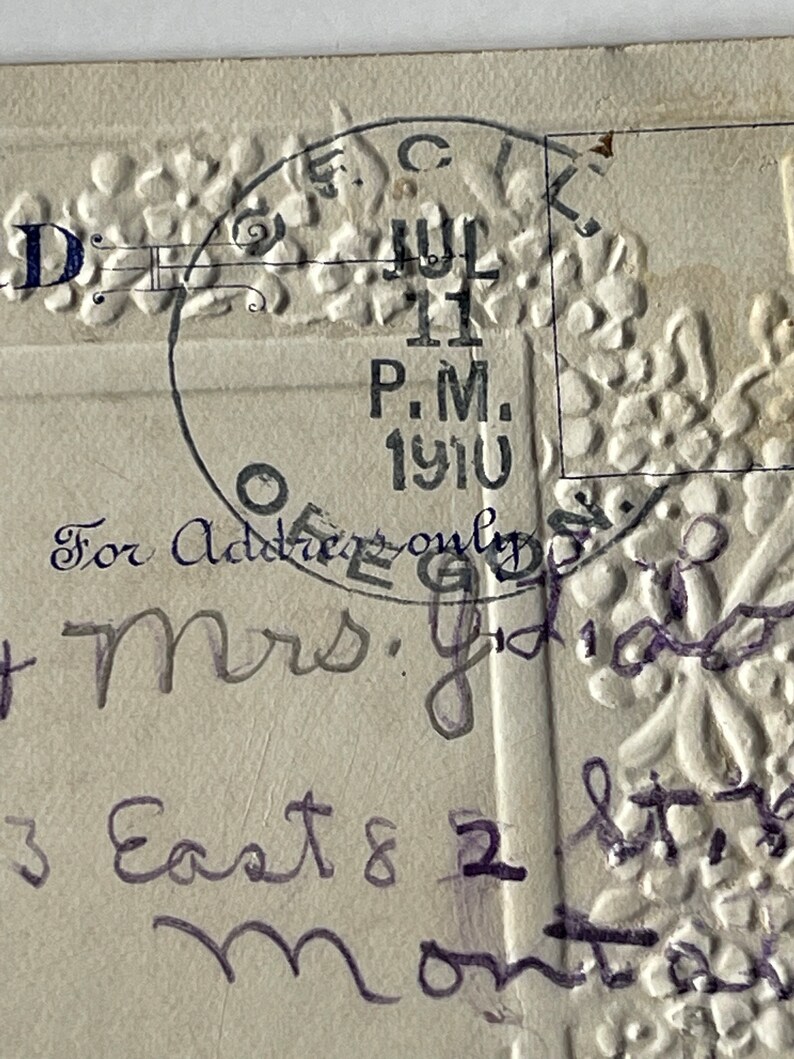 CECIL,
D
JUL
11
P.M.
1910
OREGON.
For Address only
Mrs. J.
3 East 82 St.